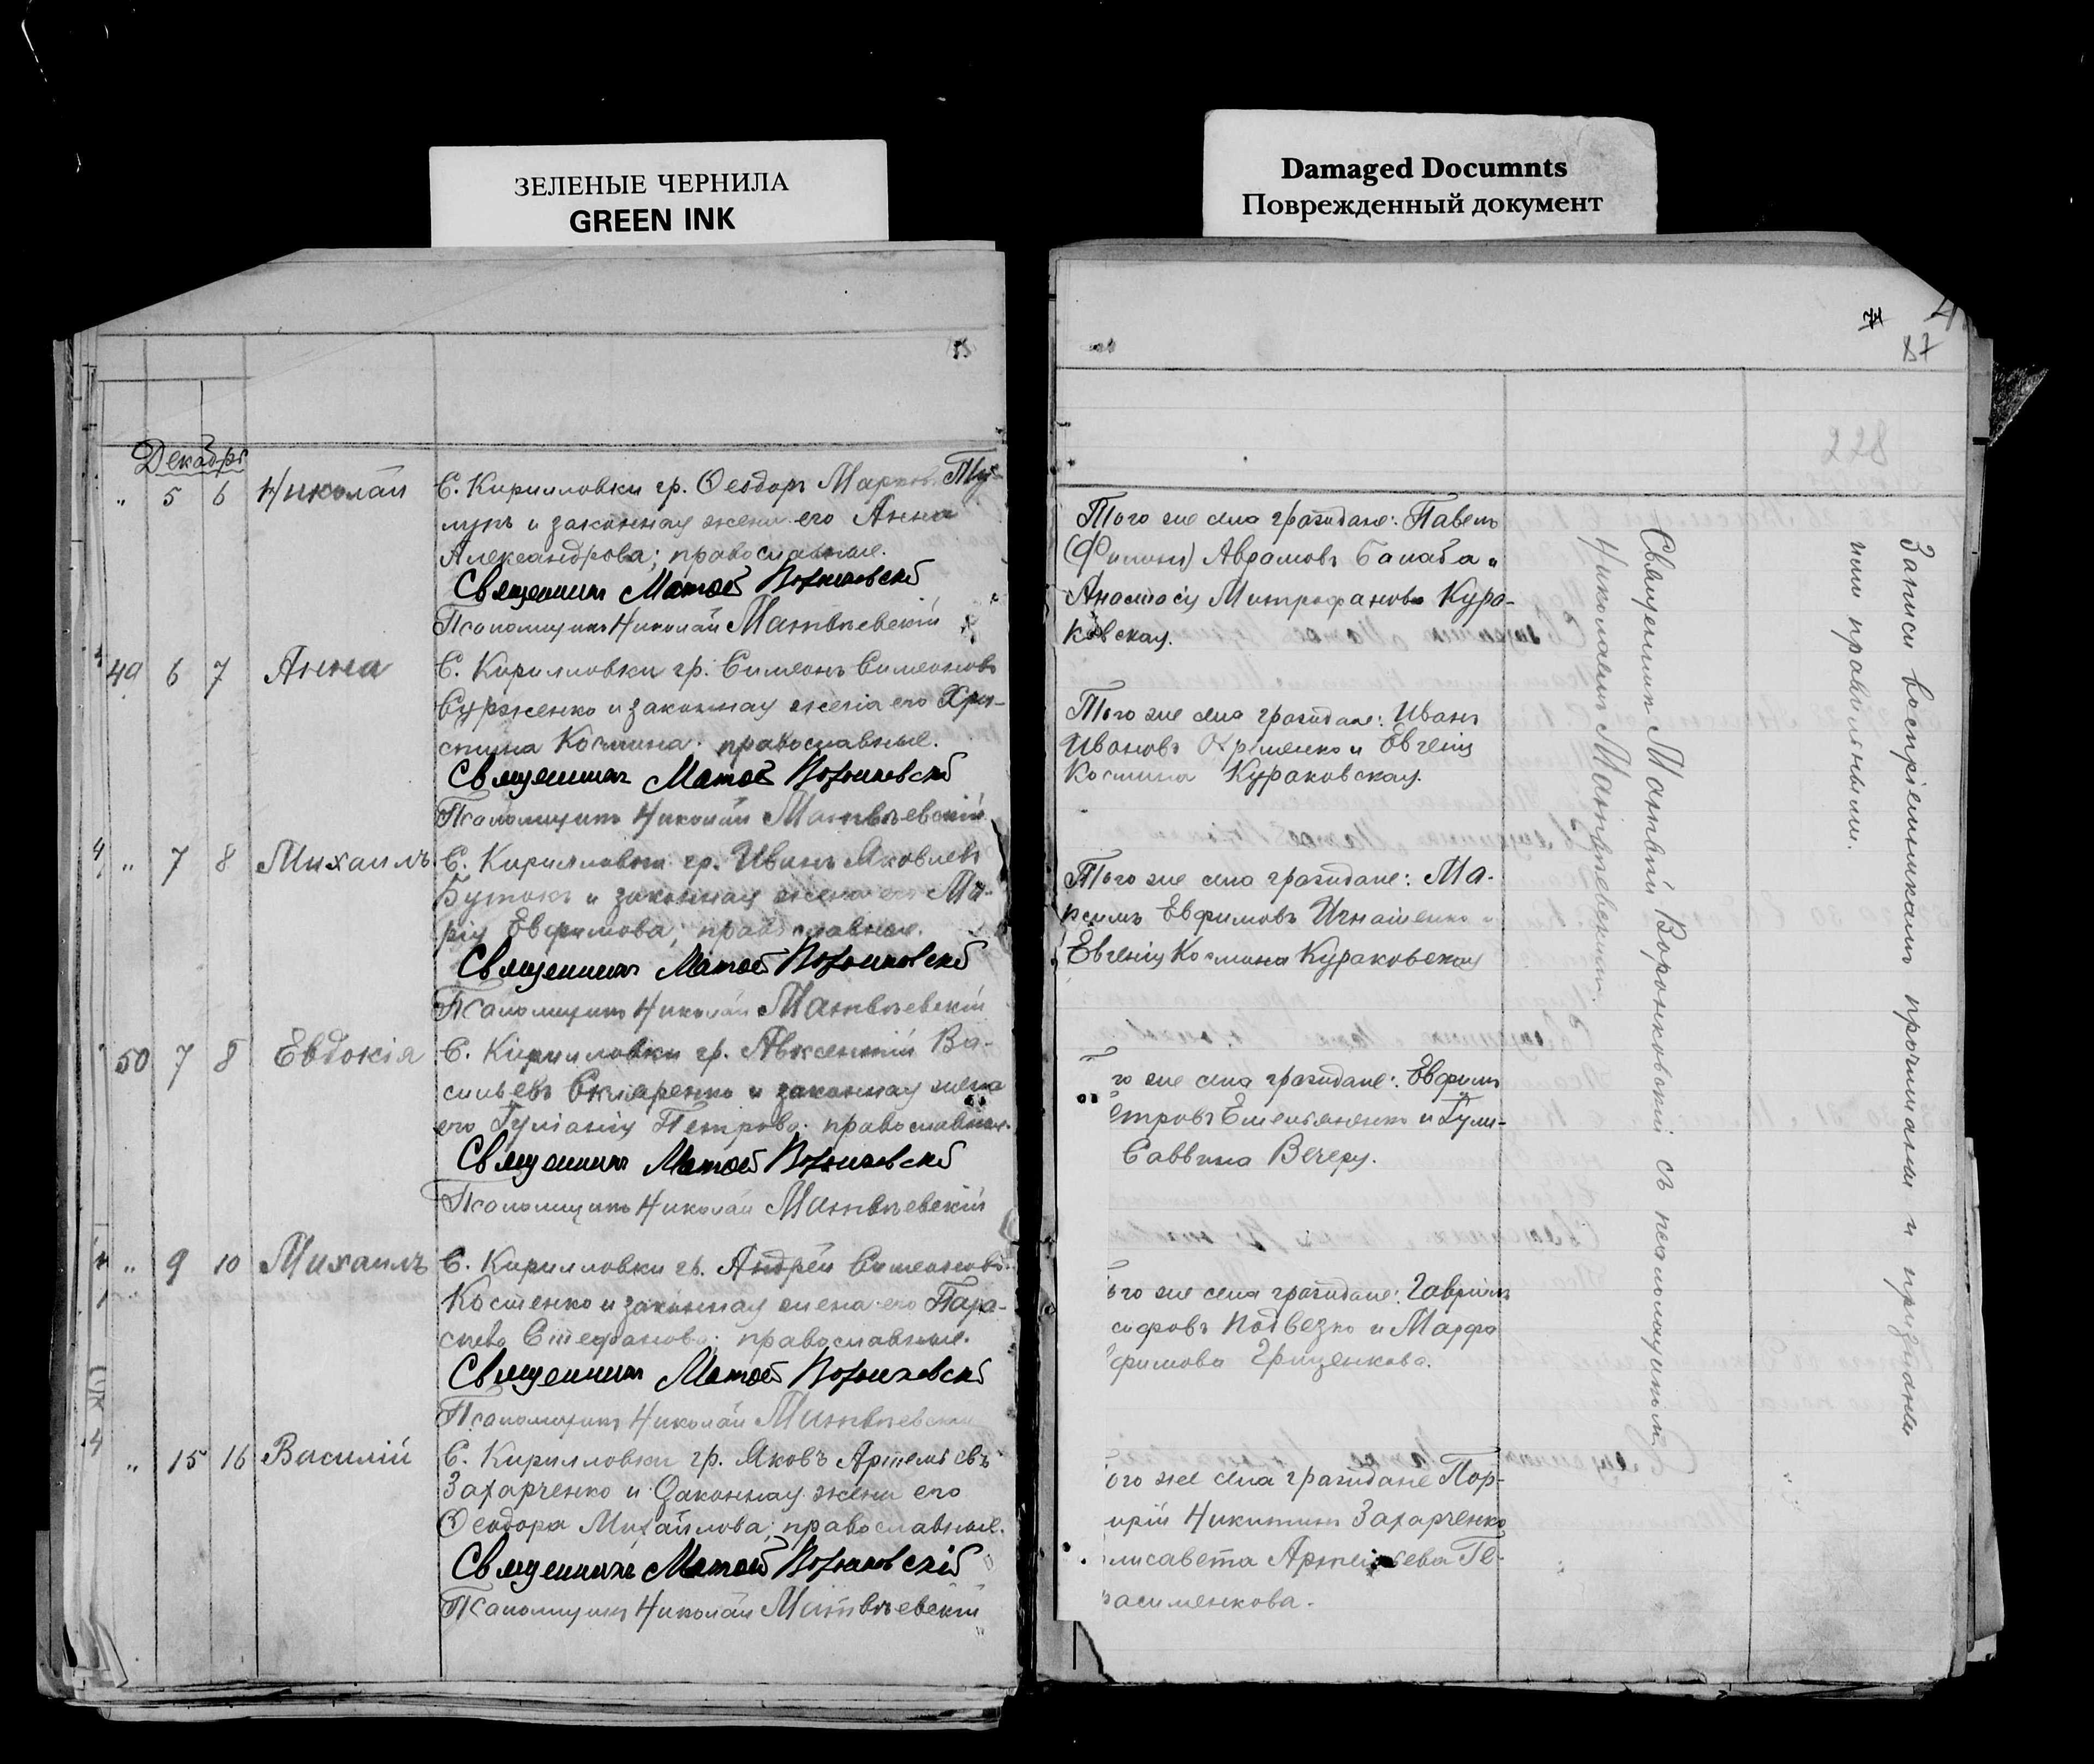 ЗЕЛЕНЫЕ ЧЕРНИЛА
GREEN INK
Damaged Documnts
Поврежденный документ
Декабрь
" 5 6 Николай
С. Кирилловки гр. Ѳеодоръ Марков.
и законная жена его Анна
Александрова; православные.
Священникъ Матѳей Воронковскій
Псаломщикъ Николай Матвѣевскій
49 6 7 Анна
С. Кирилловки гр. Симеонъ Симеоновъ
Сурженко и законная жена его Хри-
стина Космина; православные.
Священникъ Матѳей Воронковскій
Псаломщикъ Николай Матвѣевскій
" 7 8 Михаилъ
С. Кирилловки гр. Иванъ Яковлевъ
Бутокъ и законная жена его Ма-
рія Евфимова; православные.
Священникъ Матѳей Воронковскій
Псаломщикъ Николай Матвѣевскій
50 7 8 Евдокія
С. Кирилловки гр. Авксентій Ва-
сильевъ Скляренко и законная жена
его Гуліанія Петрова; православные.
Священникъ Матѳей Воронковскій
Псаломщикъ Николай Матвѣевскій
" 9 10 Михаилъ
С. Кирилловки гр. Андрей Симеоновъ
Костенко и законная жена его Пара-
скева Стефанова; православные.
Священникъ Матѳей Воронковскій
Псаломщикъ Николай Матвѣевскій
" 15 16 Василій
С. Кирилловки гр. Яковъ Артемьевъ
Захарченко и законная жена его
Ѳеодора Михайлова; православные.
Священникъ Матѳей Воронковскій
Псаломщикъ Николай Матвѣевскій
87
228
Того же села граждане: Павелъ
Аврамовъ Балаба и
Анастасія Митрофанова Кура-
ковская.
Того же села граждане: Иванъ
Ивановъ Охрименко и Евгенія
Космина Кураковская.
Того же села граждане: Ма-
ксимъ Евфимовъ Игнатенко и
Евгенія Космина Кураковская
го же села граждане: Евфимъ
етровъ Емельяненко и Гули-
Саввина Вечеря.
ого же села граждане: Гавріилъ
сифовъ Подвезко и Марфа
фимова Гриценкова.
ого же села граждане Пор-
фирій Никитинъ Захарченко
лисавета Артемьева Ге-
расименкова.
Священникъ Матвѣй Воронковскій съ псаломщикомъ
Николаемъ Матвѣевскимъ.
Записи воспріемниками прочитаны и признаны
ими правильными.